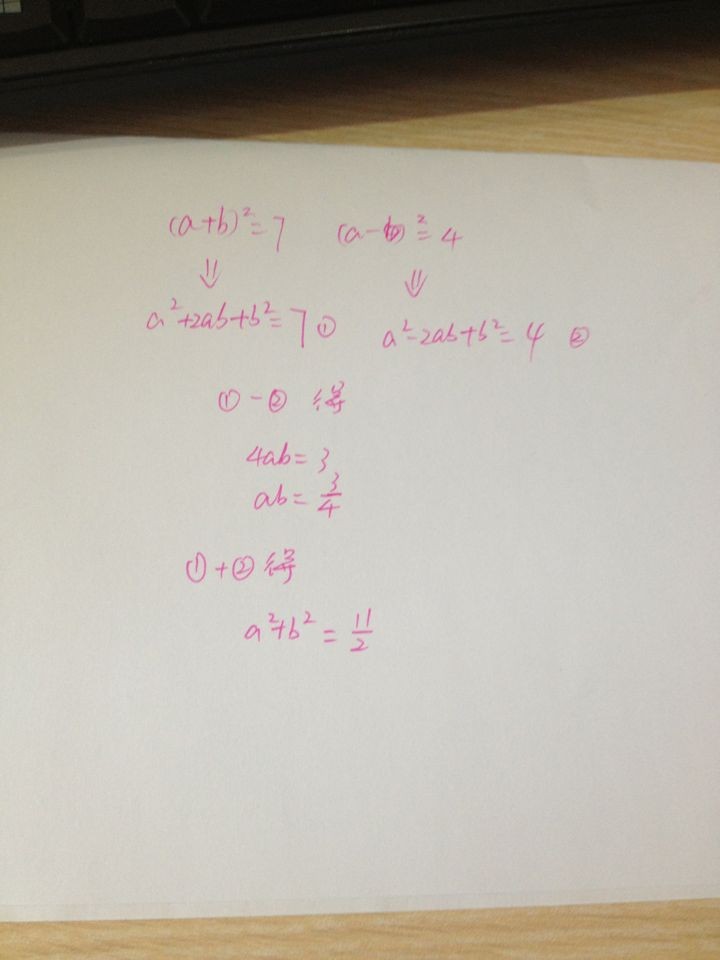 (a+b)²=7 (a-b)²=4
⇓ ⇓
a²+2ab+b²=7① a²-2ab+b²=4 ②
①-② 得
4ab=3
ab=3/4
①+②得
a²+b²=11/2